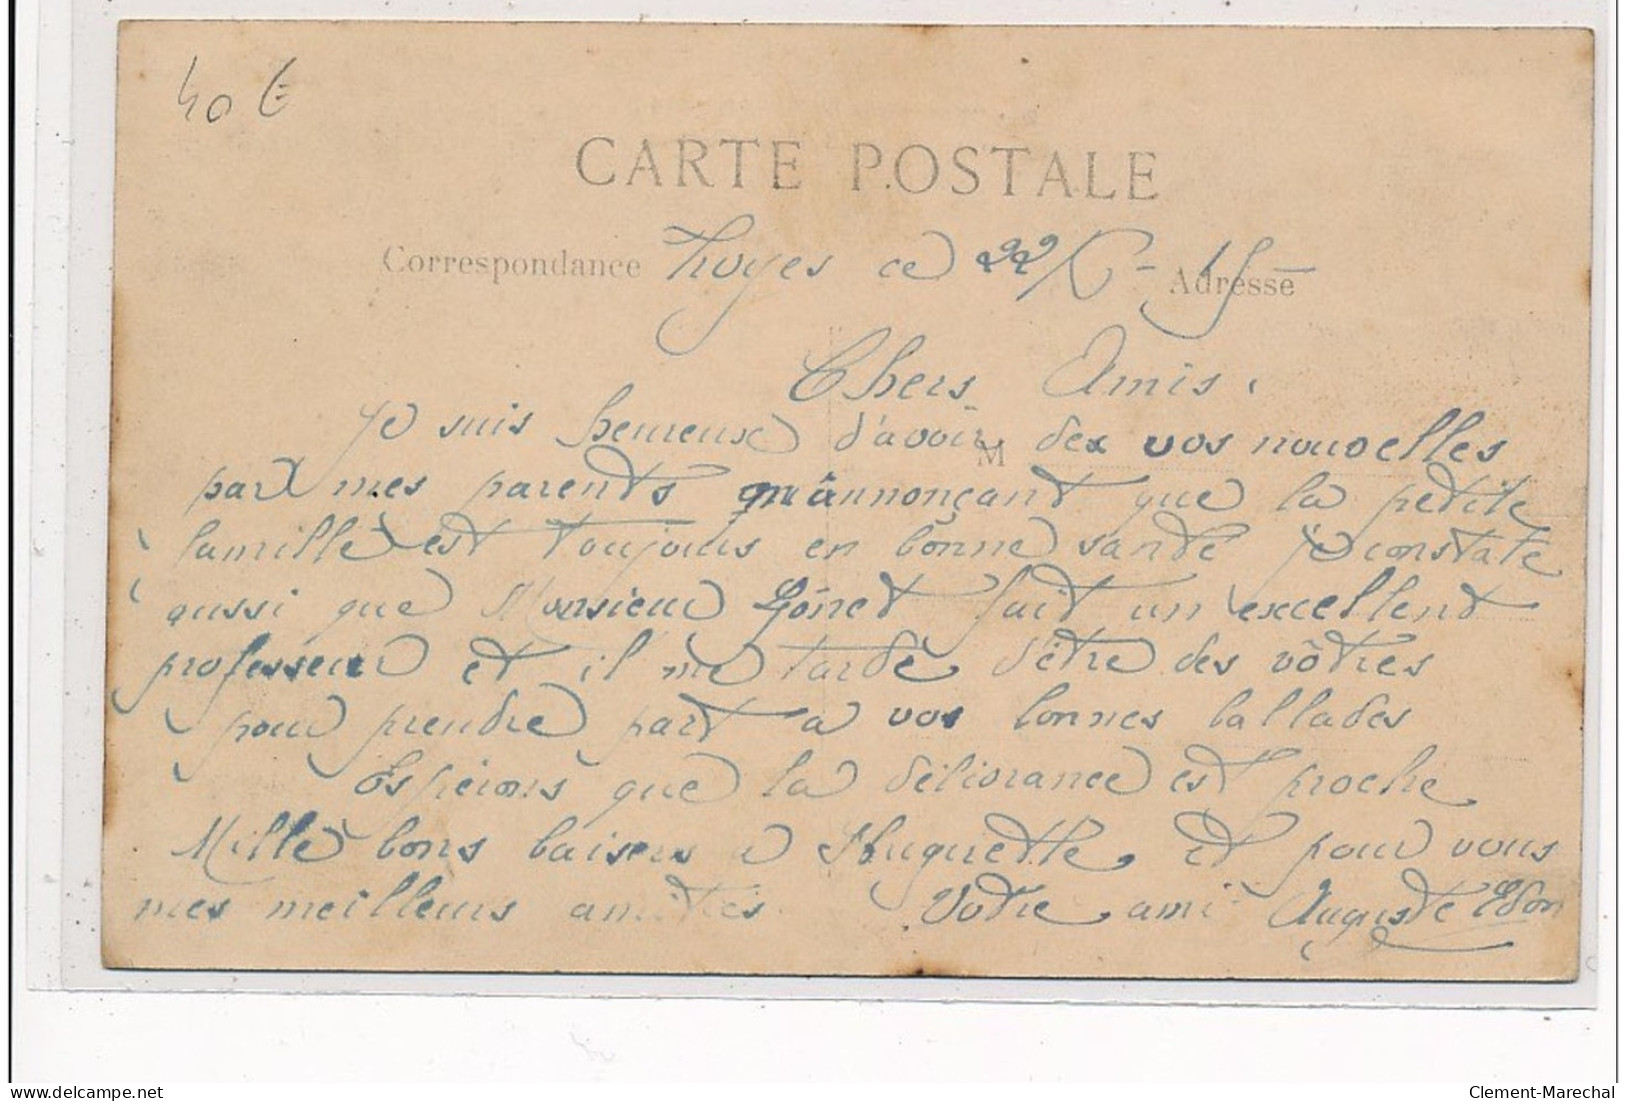 40 €
CARTE POSTALE
Correspondance Troyes ce 22/ - 15 Adresse
Chers Amis.
Je suis heureuse d'avoir de vos nouvelles
M
par mes parents m'annonçant que la petite
famille est toujours en bonne santé Je constate
aussi que Monsieur fait un excellent
professeur et il me tarde d'être des vôtres
pour prendre part a vos bonnes ballades
Espérons que la délivrance est proche
Mille bons baisers a Huguette et pour vous
mes meilleurs amitiés Votre ami Auguste Edon
delcampe.net
Clement-Marechal